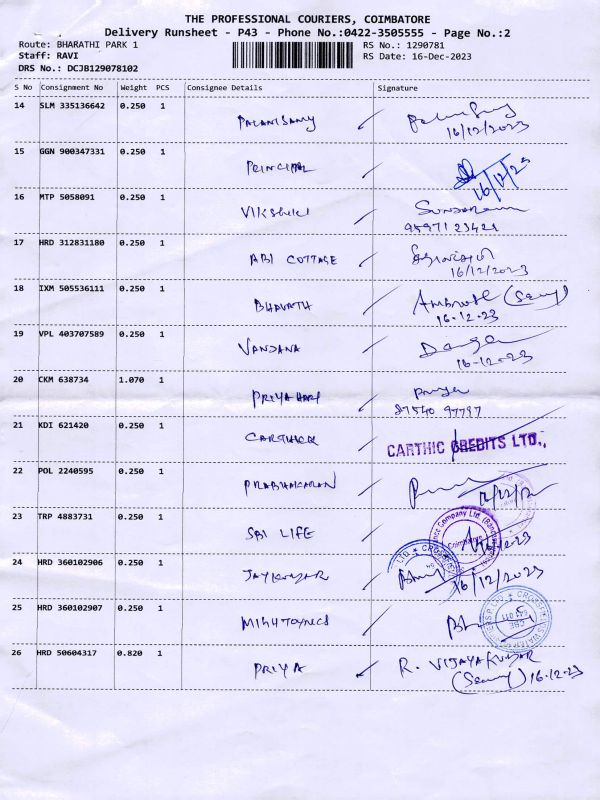 THE PROFESSIONAL COURIERS, COIMBATORE
Delivery Runsheet - P43 - Phone No.:0422-3505555 - Page No.:2
Route: BHARATHI PARK 1 RS No.: 1290781
Staff: RAVI RS Date: 16-Dec-2023
DRS No.: DCJB129078102
S No Consignment No Weight PCS Consignee Details Signature
14 SLM 335136642 0.250 1 PALANISAMY
16/12/2023
15 GGN 900347331 0.250 1 PRINCIPAL
16/12/23
16 MTP 5058091 0.250 1 Sundaram
9597123421
17 HRD 312831180 0.250 1 ABI COTTAGE
16/12/2023
18 IXM 505536111 0.250 1 BHARATH
16-12-23
19 VPL 403707589 0.250 1 VANDANA
16-12-23
20 CKM 638734 1.070 1 PRIYA HARI Priya
87540 97797
21 KDI 621420 0.250 1 CARTHICK CARTHIC CREDITS LTD.,
22 POL 2240595 0.250 1 PRABHAKARAN
23 TRP 4883731 0.250 1 SBI LIFE Coimbatore 16/12-23
24 HRD 360102906 0.250 1 JAYKUMAR 16/12/2023
25 HRD 360102907 0.250 1
26 HRD 50604317 0.820 1 PRIYA R. VIJAYAKUMAR
16-12-23